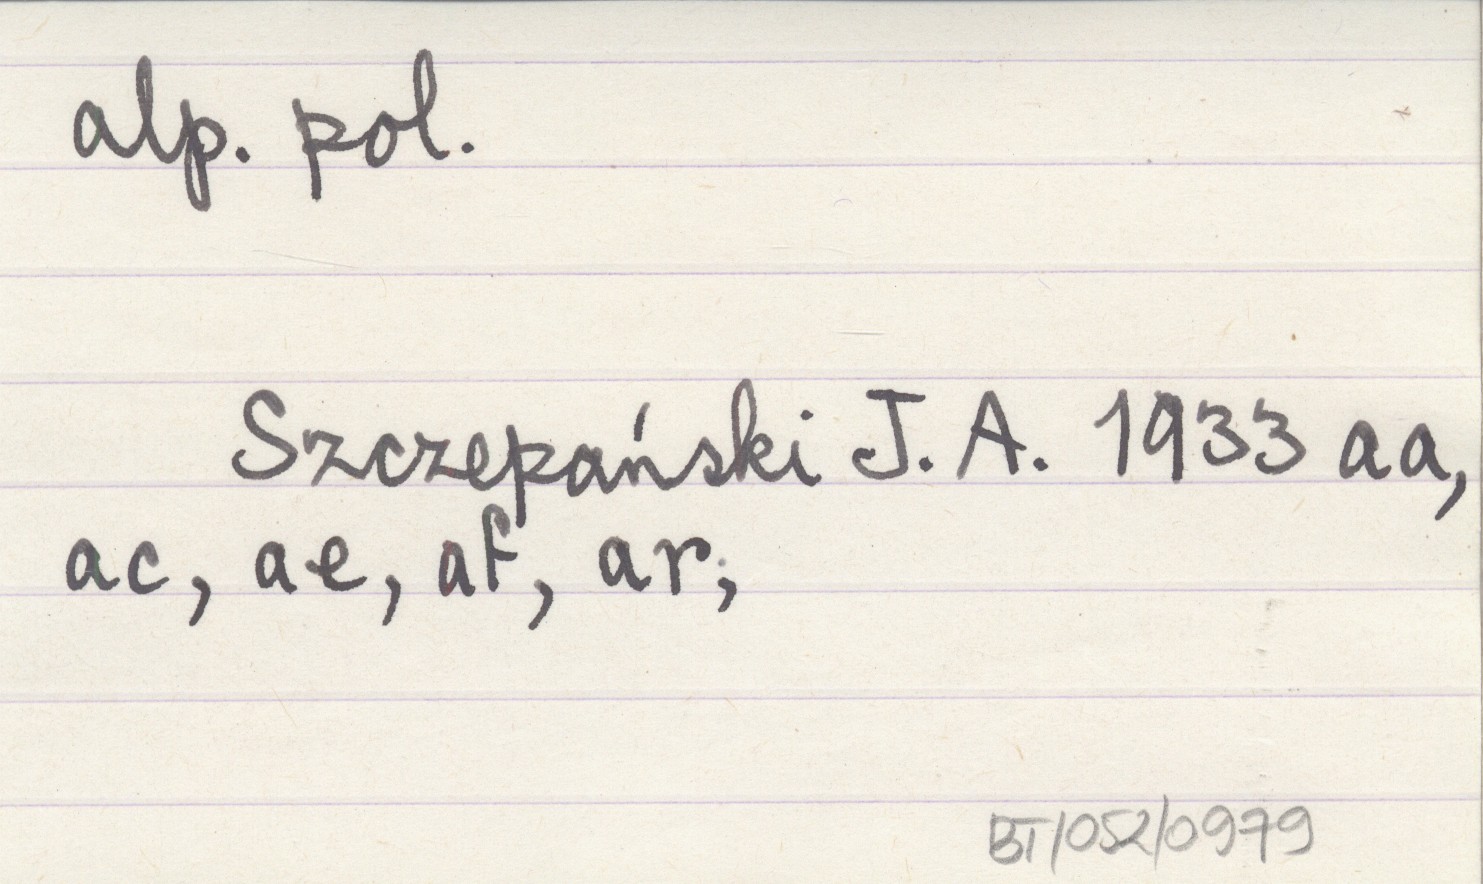 alp. pol.
Szczepański J. A. 1933 aa,
ac, ae, af, ar;
BT/052/0979